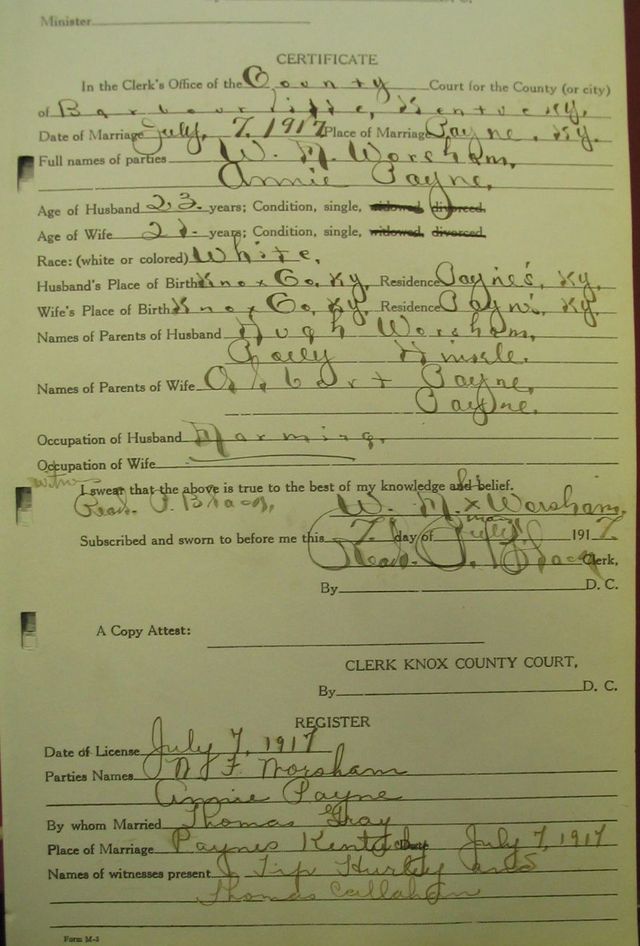 D. C.
Minister
CERTIFICATE
In the Clerk's Office of the County Court for the County (or city)
of Barbourville, Kentucky,
Date of Marriage July, 7, 1917 Place of Marriage Payne, Ky.
Full names of parties W. M. Worsham,
Annie Payne,
Age of Husband 23. years; Condition, single, widowed, divorced.
Age of Wife 21. years; Condition, single, widowed, divorced.
Race: (white or colored) White,
Husband's Place of Birth Knox Co, Ky, Residence Payne's, Ky.
Wife's Place of Birth Knox Co, Ky, Residence Payn's, Ky.
Names of Parents of Husband Hugh Worsham,
Polly Hinkle.
Names of Parents of Wife Payne,
Payne.
Occupation of Husband Farming,
Occupation of Wife
I swear that the above is true to the best of my knowledge and belief.
W. M. his x mark Worsham.
Subscribed and sworn to before me this 7. day of July, 1917.
Read. P. Black, Clerk,
By D. C.
A Copy Attest:
CLERK KNOX COUNTY COURT,
By D. C.
REGISTER
Date of License July 7, 1917
Parties Names Worsham
Annie Payne
By whom Married Thomas Gray
Place of Marriage Paynes Kentucky July 7, 1917
Names of witnesses present Tip Hurley and
Thomas Callahan
Form M-3